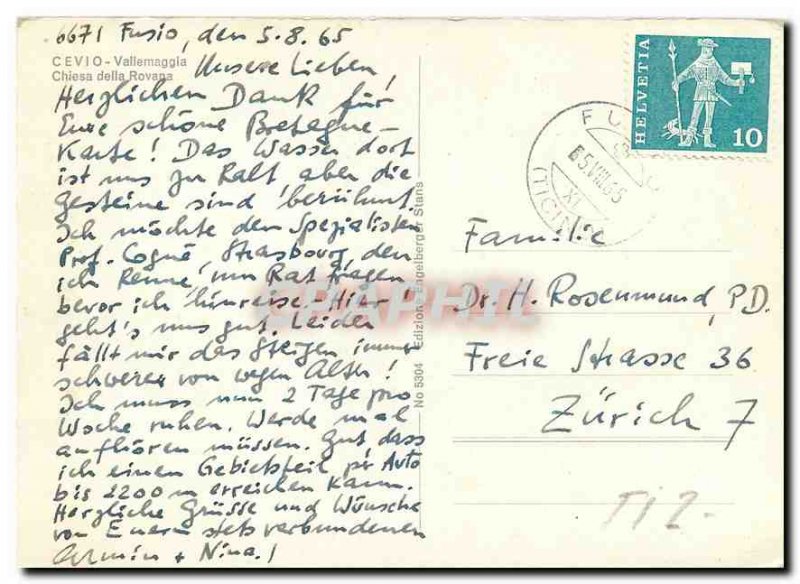 6671 Fusio, den 5.8.65
CEVIO - Vallemaggia
Chiesa della Rovana
Unsere Lieben!
Herzlichen Dank für
Eure schöne Bretagne-
Karte! Das Wasser dort
ist uns zu kalt aber die
Gesteine sind berühmt.
Ich möchte den Spezialisten
Prof. Cogné, Strasbourg, den
ich kenne, um Rat fragen
bevor ich hinreise. Hier
geht's uns gut. Leider
fällt mir das Steigen immer
schwerer von wegen Alter!
Ich muss nun 2 Tage pro
Woche ruhen. Werde mal
aufhören müssen. Gut dass
ich einen Gebietsteil per Auto
bis 2200 m erreichen kann.
Herzliche Grüsse und Wünsche
von Euern stets verbundenen
Armin + Nina!
No 5304 Edizion Engelberger Stans
HELVETIA
10
FU
(TICINO)
XI
Familie
Dr. H. Rosenmund, P.D.
Freie Strasse 36
Zürich 7
T12-